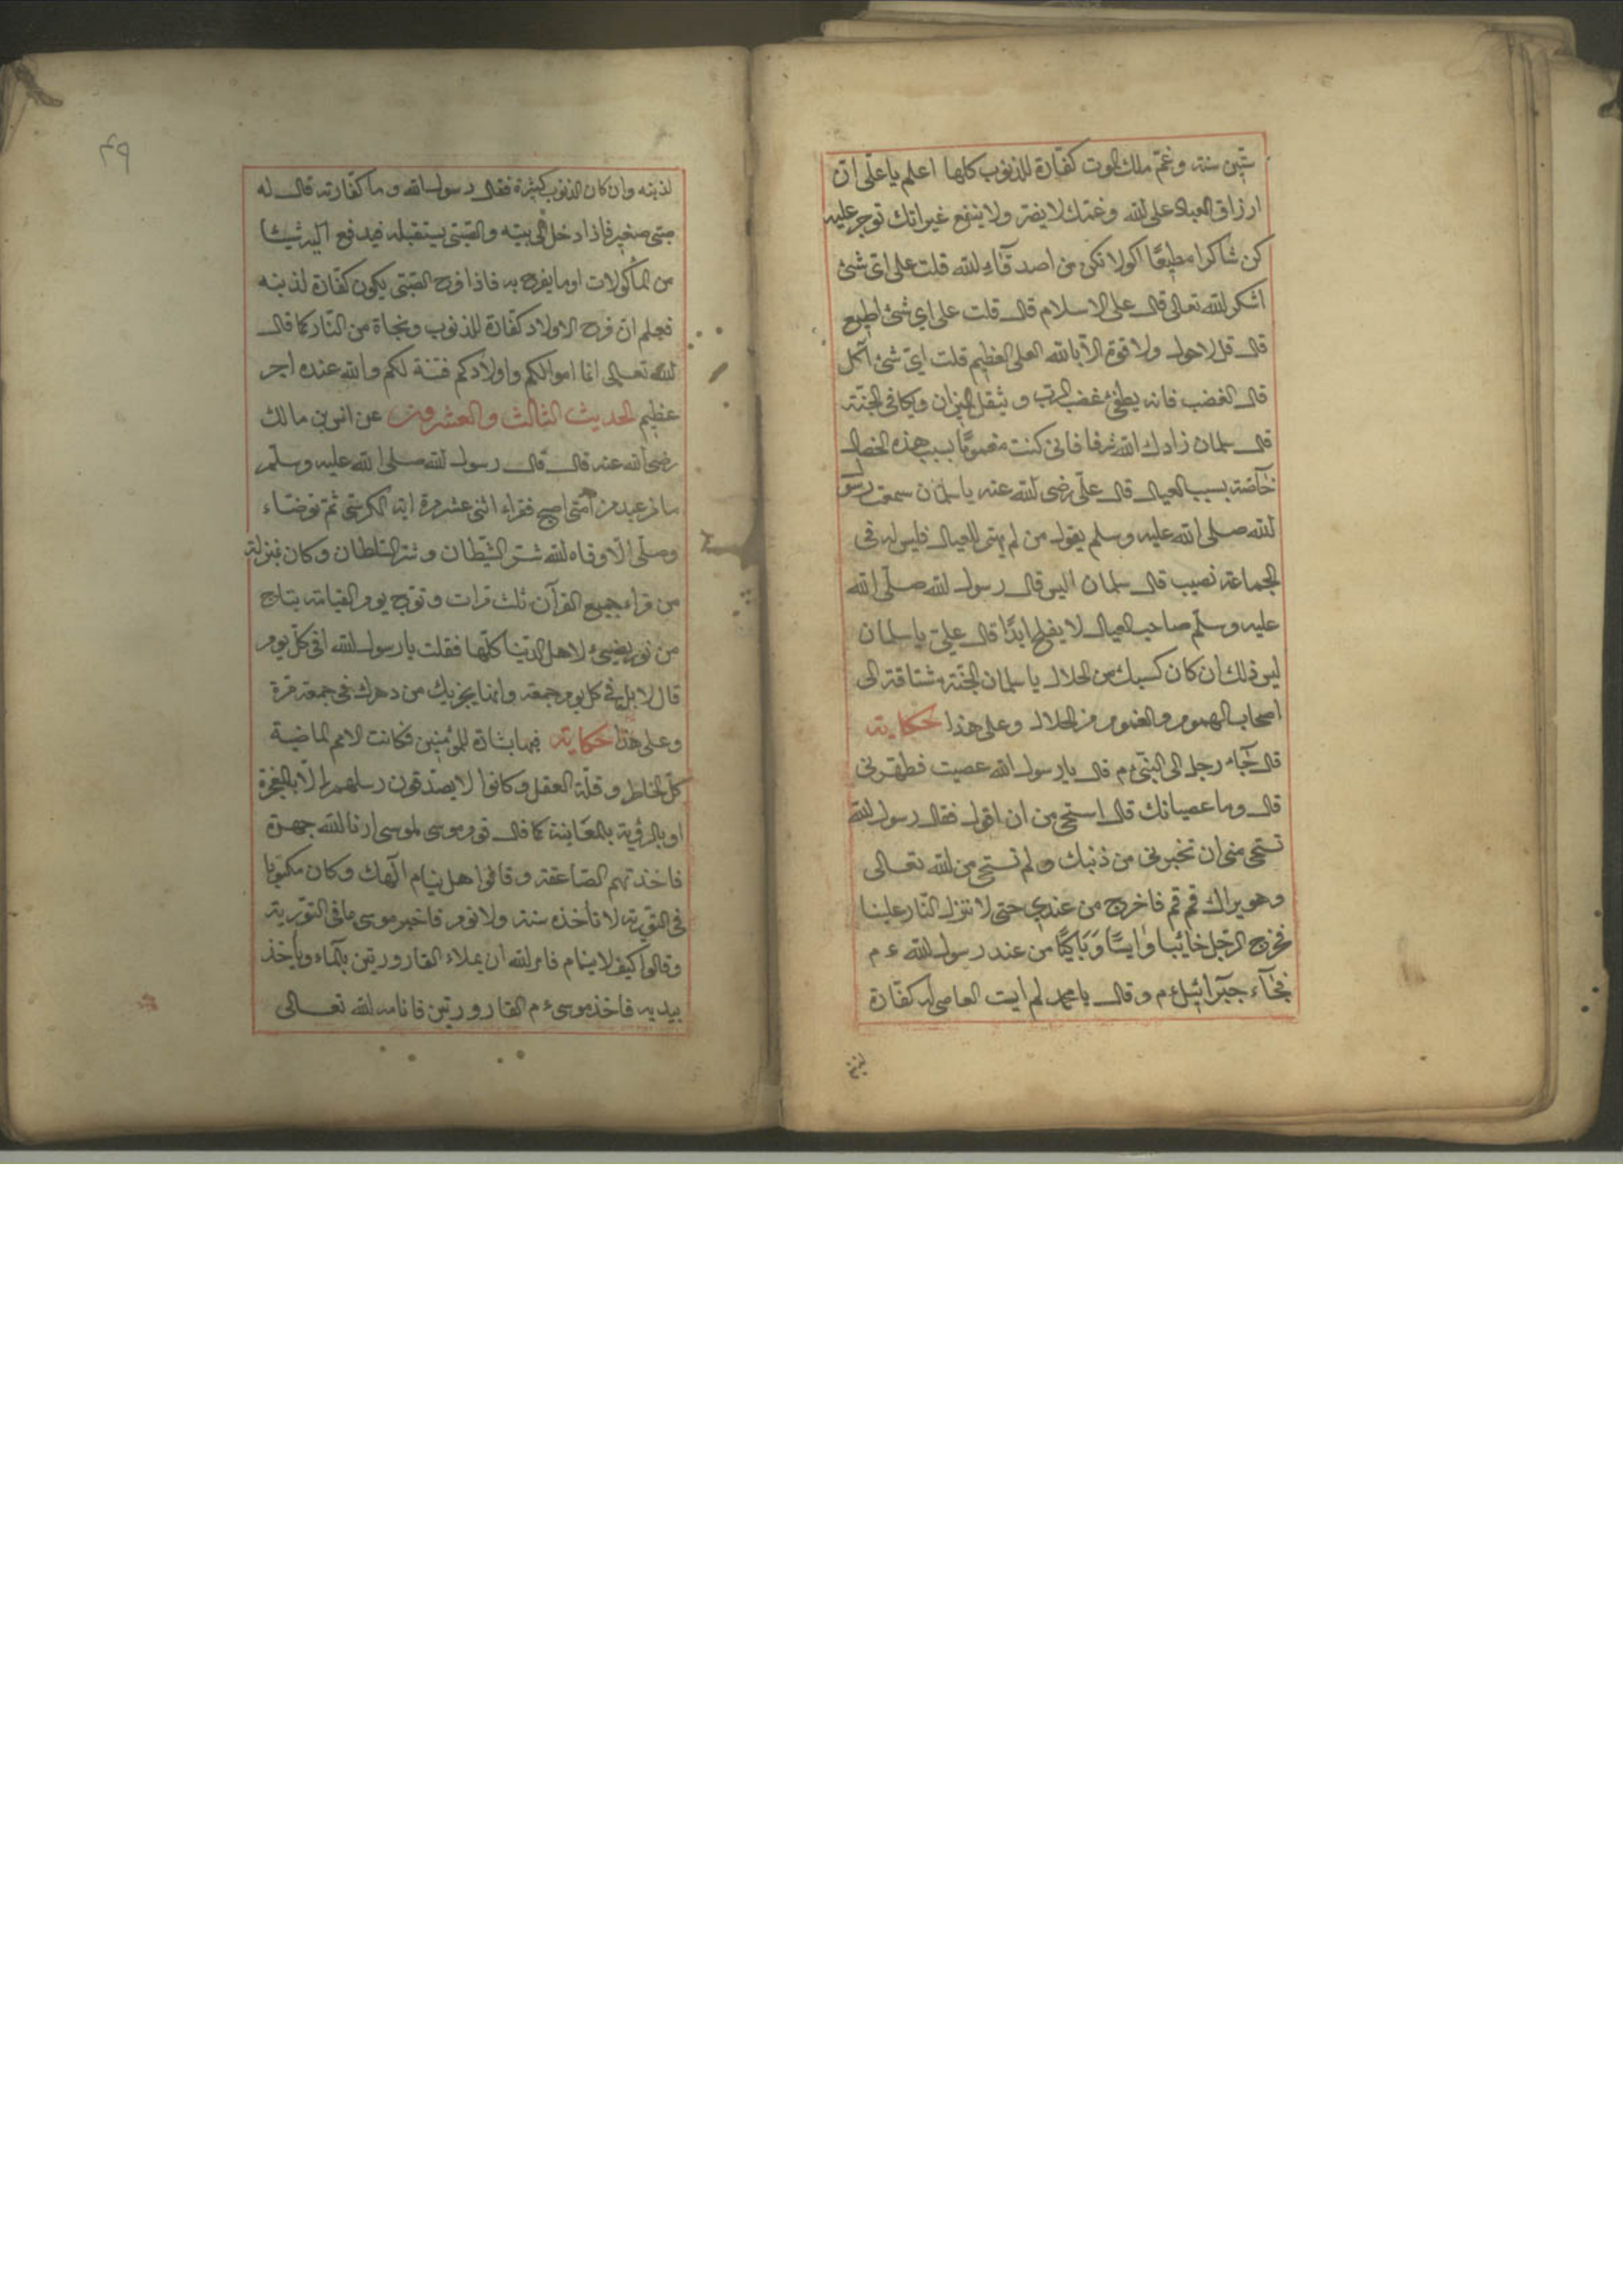 ستين سنة وغم ملك الموت كفارة للذنوب كلها اعلم يا على ان
ارزاق العباد على الله وغمك لا يضر ولا ينفع غير انك توجر عليه
كن شاكرا مطيعا اكولا تكن من اصدقاء الله قلت على اى شئ
اشكر الله تعالى قال على الاسلام قال قلت على اى شئ اطيع
قال قل لا حول ولا قوة الا بالله العلى العظيم قلت اى شئ آكل
قال الغضب فانه يطفئ غضب الرب و يثقل الميزان وكافى الجنة
قال سلمان زادك الله شرفا فانى كنت مغموما بسبب هذه الخصال
خاصة بسبب العيال قال على رضى الله عنه يا سلمان سمعت رسول
الله صلى الله عليه وسلم يقول من لم يهتم للعيال فليس له فى
الجماعة نصيب قال سلمان اليس قال رسول الله صلى الله
عليه وسلم صاحب العيال لا يفلح ابدا قال على يا سلمان
ليس ذلك ان كان كسبك من الحلال يا سلمان الجنة مشتاقة الى
اصحاب الهموم والغموم من الحلال وعلى هذا حكاية
قال جاء رجل الى النبى ءم قال يا رسول الله عصيت فطهرنى
قال وما عصيانك قال استحى من ان اقول فقال رسول الله
تستحى منى ان تخبرنى من ذنبك و لم تستحى من الله تعالى
وهو يراك قم قم فاخرج من عندى حتى لا تنزل النار علينا
فخرج الرجل خائبا وايسا وباكيا من عند رسول الله ءم
فجآء جبرائيل ءم وقال يا محمد لم ايت العاصى له كفارة
لذنبه
لذنبه وان كان الذنوب كثيرة فقال رسول الله و ما كفارته قال له
صبى صغير فاذا دخل فى بيته والصبى يستقبله فيدفع اليه شيئا
من المأكولات او ما يفرح به فاذا فرح الصبى يكون كفارة لذنبه
فيعلم ان فرح الاولاد كفارة للذنوب ونجاة من النار كما قال
الله تعالى انما اموالكم واولادكم فتنة لكم والله عنده اجر
عظيم الحديث الثالث والعشرون عن انس بن مالك
رضى الله عنه قال قال رسول الله صلى الله عليه وسلم
ما من عبد من امتى اصبح فقراء اثنى عشر مرة اية الكرسى ثم توضاء
وصلى الا وقاه الله شر الشيطان و شر السلطان وكان بمنزلة
من قراء جميع القرآن ثلث مرات وتوج يوم القيامة بتاج
من نور يضيئ لاهل الدنيا كلها فقلت يا رسول الله افى كل يوم
قال لا بل فى كل يوم جمعة وانما يجزيك من دهرك فى جمعة مرة
وعلى هذا حكاية فيها بشارة للمؤمنين فكانت الامم الماضية
كل الخاطر و قلة العقل وكانوا لا يصدقون رسلهم الا بالمعجزة
او بالرؤية بالمعاينة كما قال قوم موسى لموسى ارنا الله جهرة
فاخذتهم الصاعقة وقالوا هل ينام آلهك وكان مكتوبا
فى التورية لا تأخذه سنة ولا نوم فاخبر موسى ما فى التورية
وقالوا كيف لا ينام فامر الله ان يملاء القارورتين بالماء ويأخذ
بيديه فاخذ موسى ءم القارورتين فانامه الله تعالى